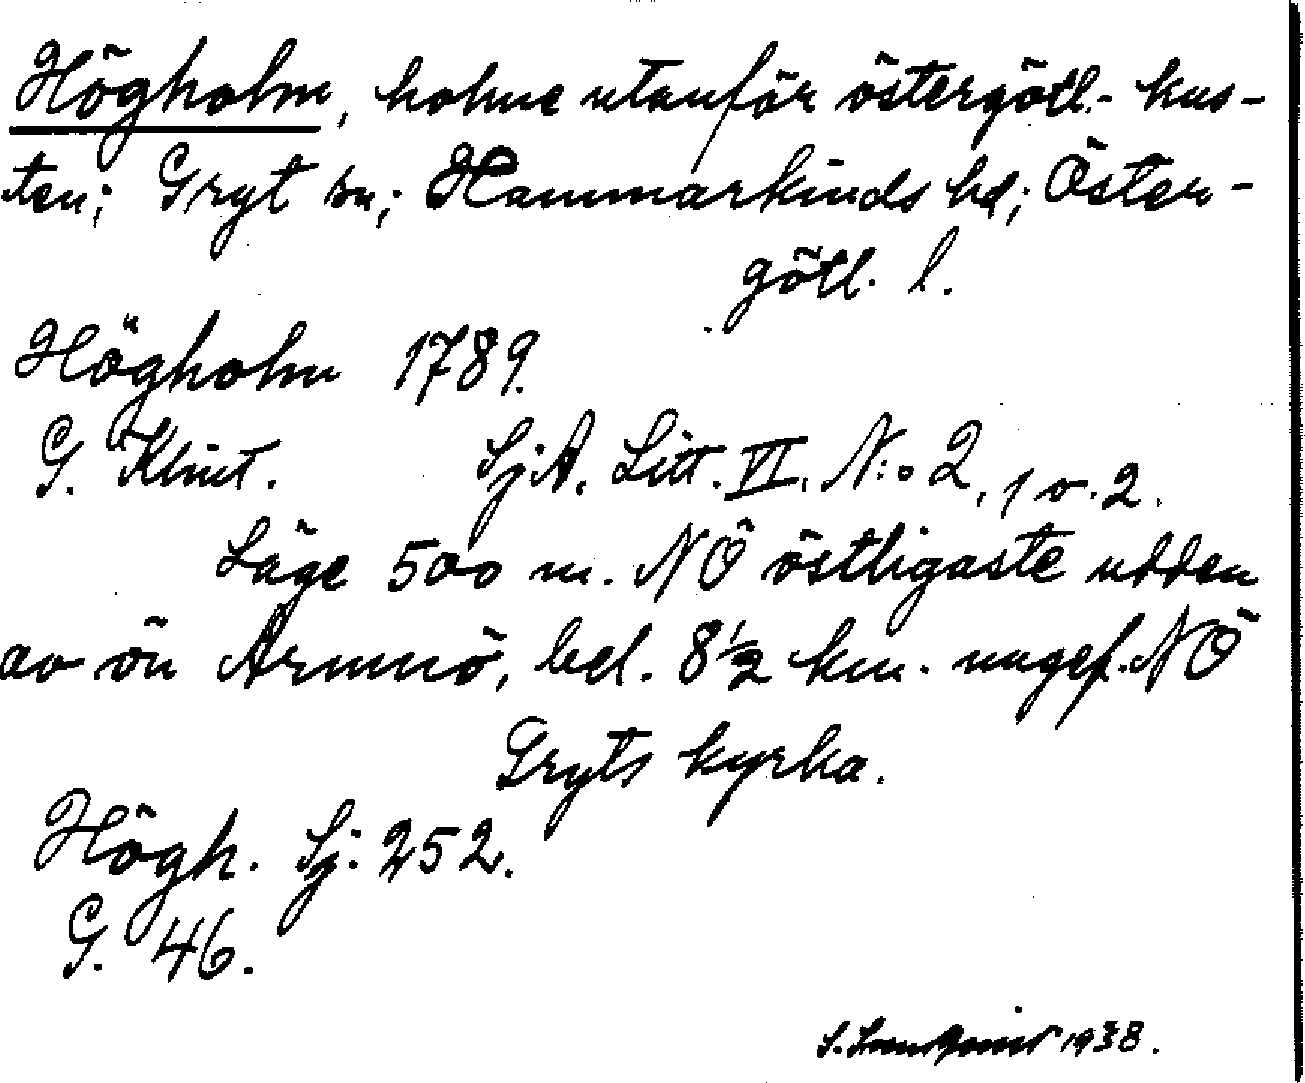 Högholm, holme utanför östergötl. kus-
ten; Gryt sn; Hammarkinds hd; Öster-
götl. l.
Högholm 1789.
G. Klint. SjA. Litt. VI. N:o 2, 1 o. 2.
Läge 500 m. NÖ östligaste udden
av ön Armnö, bel. 8 1/2 km. ungef. NÖ
Gryts kyrka.
Högh. Sj. 252.
G. 46.
S. 1938.